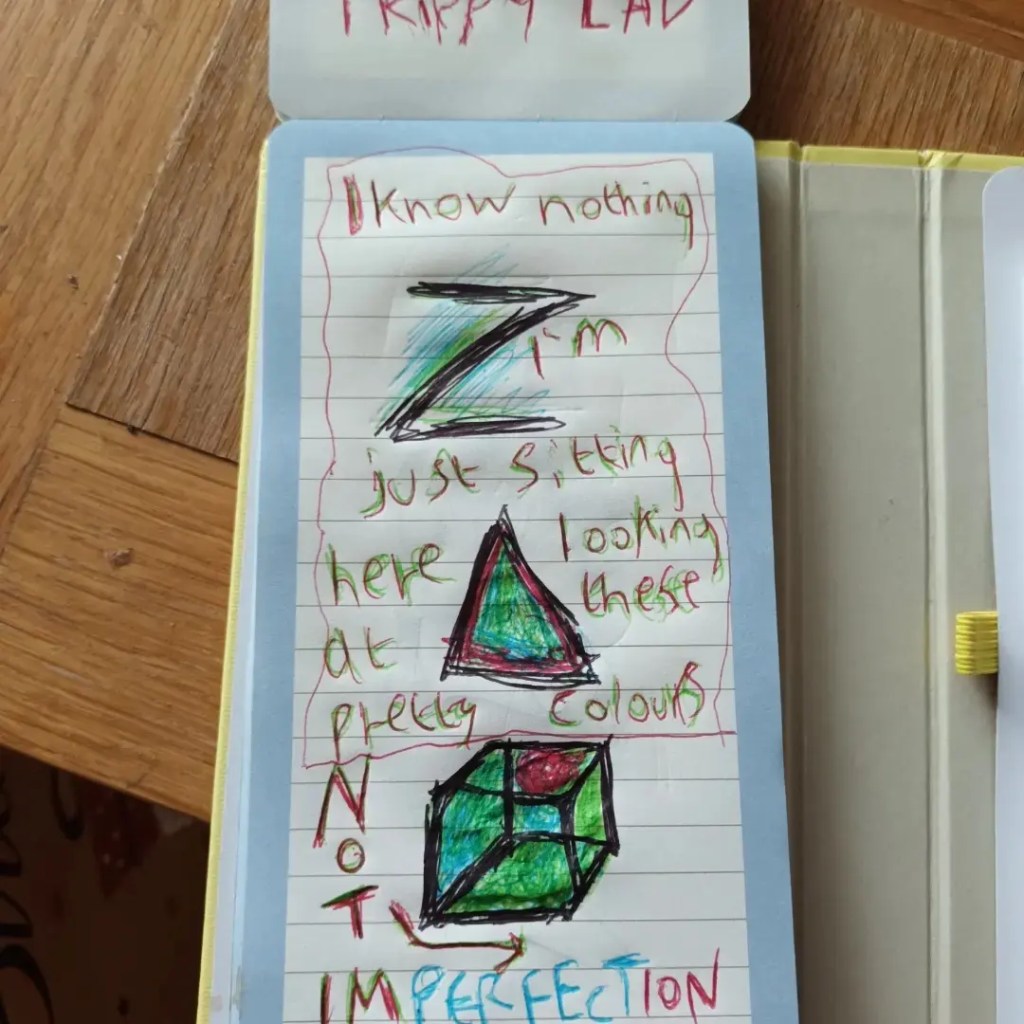 TRIPPY LAD
I know nothing
Z
i'm
just sitting
here looking
at these
pretty colours
NOT
IMPERFECTION